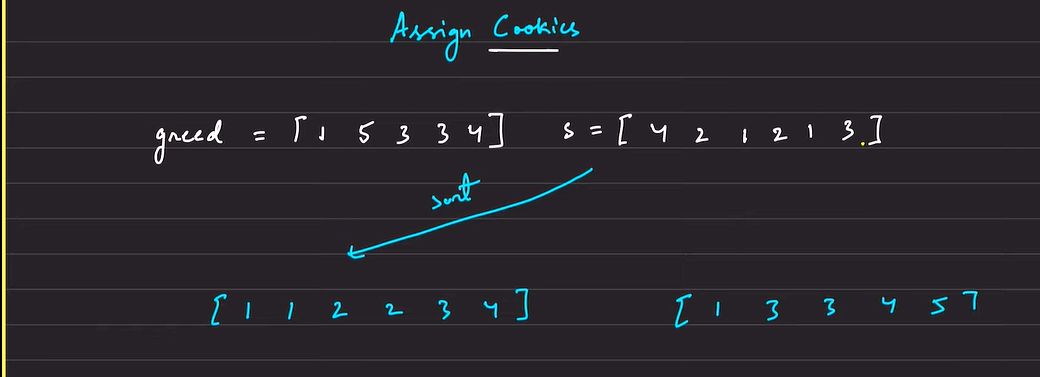 Assign Cookies
greed = [ 1 5 3 3 4 ] s = [ 4 2 1 2 1 3 . ]
sort
[ 1 1 2 2 3 4 ] [ 1 3 3 4 5 ]